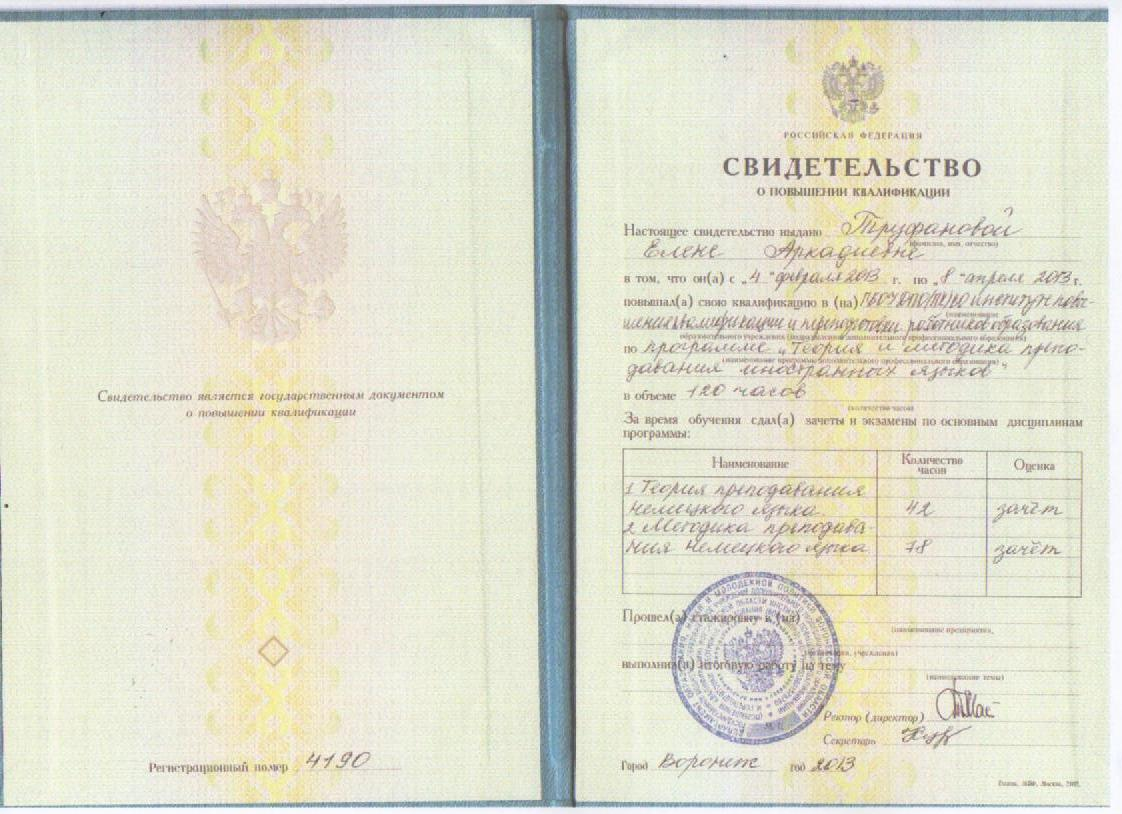 Свидетельство является государственным документом
о повышении квалификации
Регистрационный номер 4190
РОССИЙСКАЯ ФЕДЕРАЦИЯ
СВИДЕТЕЛЬСТВО
О ПОВЫШЕНИИ КВАЛИФИКАЦИИ
Настоящее свидетельство выдано Труфановой
(фамилия, имя, отчество)
Елене Аркадиевне
в том, что он(а) с „4" февраля 2013 г. по „8" апреля 2013 г.
повышал(а) свою квалификацию в (на) институте повы-
(наименование
шения квалификации и переподготовки работников образования
образовательного учреждения (подразделения) дополнительного профессионального образования)
по программе „Теория и методика препо-
(наименование программы дополнительного профессионального образования)
давания иностранных языков"
в объеме 120 часов
(количество часов)
За время обучения сдал(а) зачеты и экзамены по основным дисциплинам
программы:
Наименование Количество часов Оценка
1 Теория преподавания
немецкого языка. 42 зачёт
2 Методика преподава-
ния немецкого языка 78 зачёт
Прошел(а) стажировку в (на)
(наименование предприятия,
организации, учреждения)
выполнил(а) итоговую работу на тему
(наименование темы)
Ректор (директор)
Секретарь
Город Воронеж год 2013